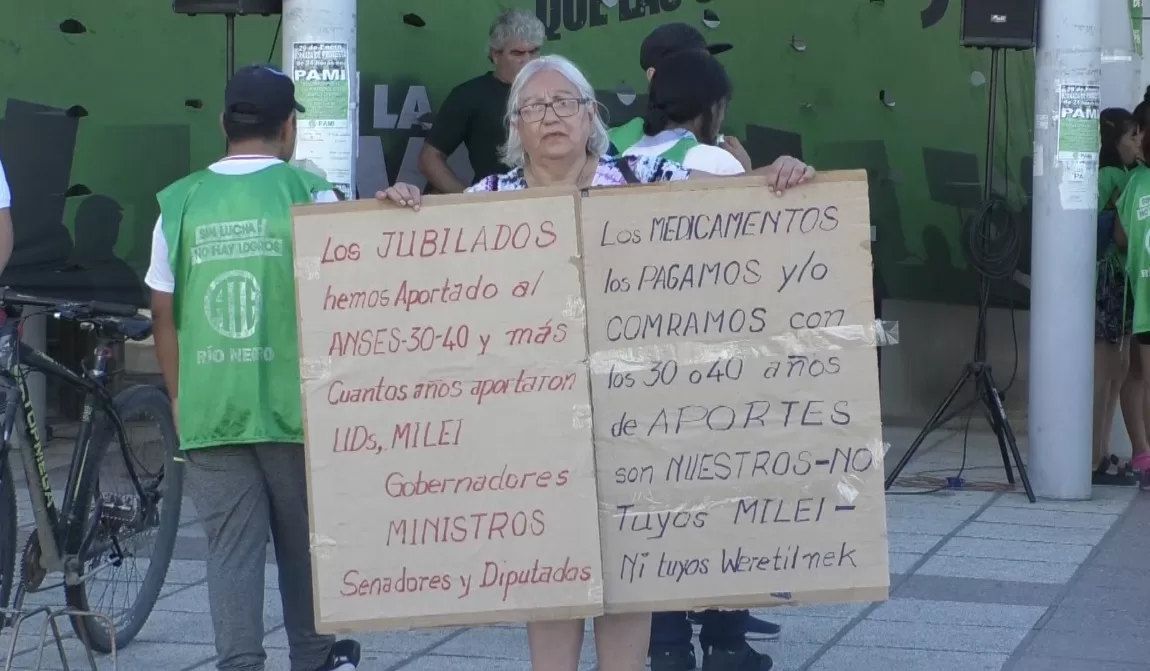 QUE LAS
LA
29 de Enero
JORNADA DE PROTESTA
de 24 horas en
PAMI
PAMI
SIN LUCHA
NO HAY LOGROS
RÍO NEGRO
Los JUBILADOS
hemos Aportado al
ANSES-30-40 y más
Cuantos años aportaron
UDs,. MILEI
Gobernadores
MINISTROS
Senadores y Diputados
Los MEDICAMENTOS
los PAGAMOS y/o
COMRAMOS con
los 30 o 40 años
de APORTES
son NUESTROS-NO
Tuyos MILEI-
Ni tuyos Weretilnek
29 de Enero
PAMI